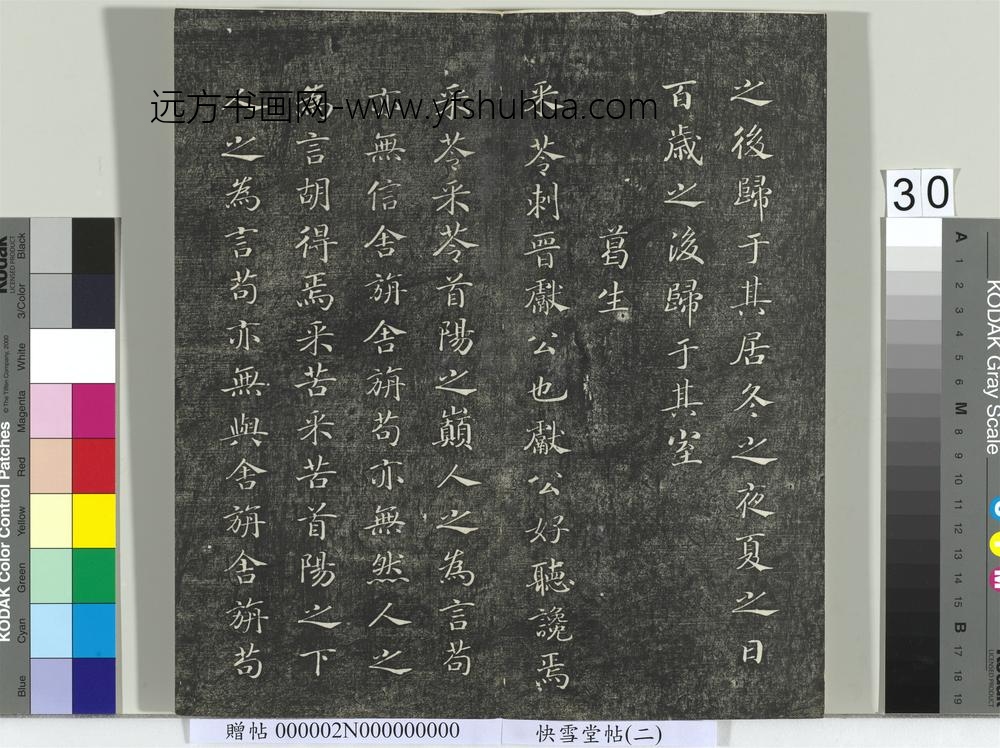 之後歸于其居冬之夜夏之日
百歲之後歸于其室
葛生
采苓刺晉獻公也獻公好聽讒焉
采苓采苓首陽之巔人之為言苟
亦無信舍旃舍旃苟亦無然人之
為言胡得焉采苦采苦首陽之下
人之為言苟亦無與舍旃舍旃苟
远方书画网-www.yfshuhua.com
30
贈帖 000002N000000000
快雪堂帖(二)
KODAK Color Control Patches
© The Tiffen Company, 2000
Kodak
LICENSED PRODUCT
Blue Cyan Green Yellow Red Magenta White 3/Color Black
KODAK Gray Scale
A 1 2 3 4 5 6 M 8 9 10 11 12 13 14 15 B 17 18 19